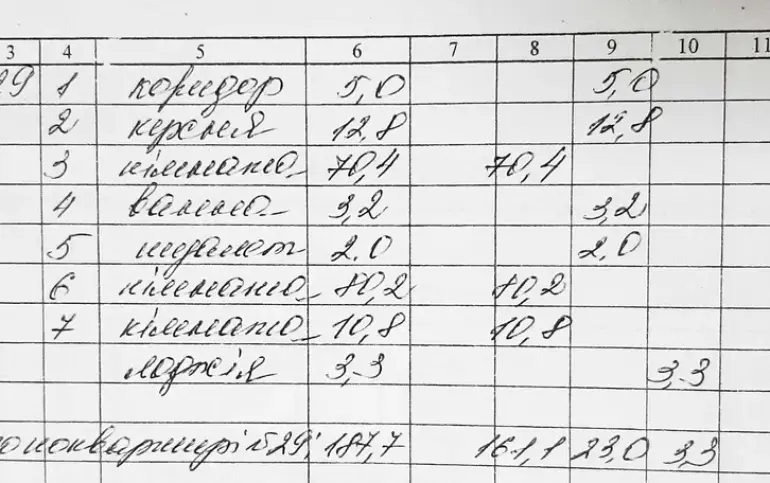 3 4 5 6 7 8 9 10 11
29 1 коридор 5,0 5,0
2 кухня 12,8 12,8
3 кімната 70,4 70,4
4 ванна 3,2 3,2
5 туалет 2,0 2,0
6 кімната 80,2 80,2
7 кімната 10,8 10,8
лоджія 3,3 3,3
о по квартирі №29: 187,7 161,1 23,0 3,3